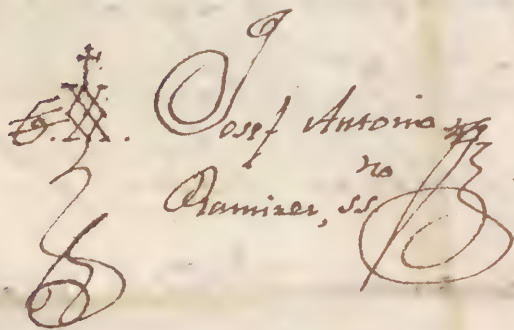 Josef Antonio
Ramirez, ss.no